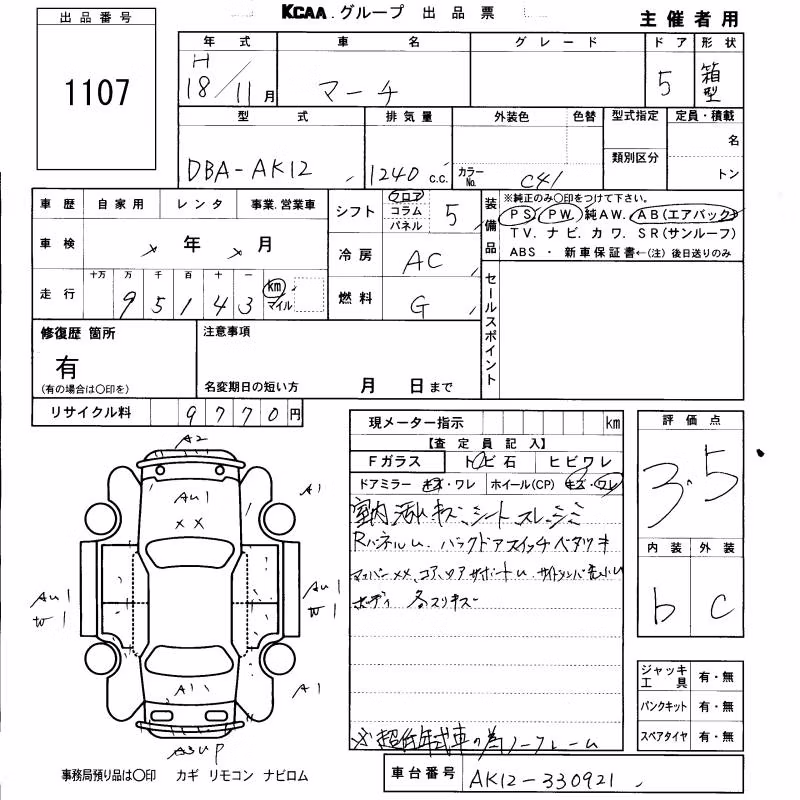 KCAA.グループ 出品票
主催者用
出品番号
1107
年式 車名 グレード ドア 形状
H 18/11月 マーチ 5 箱型
型式 排気量 外装色 色替 型式指定 定員・積載
DBA-AK12 1240 c.c. カラーNo. C41 類別区分 名
トン
車歴 自家用 レンタ 事業.営業車
車検 年 月
走行 十万 万 千 百 十 一
9 5 1 4 3 km マイル
シフト フロア コラム パネル 5
冷房 AC
燃料 G
装備品 ※純正のみ○印をつけて下さい。
PS. PW. 純AW. AB(エアバック)
TV. ナビ. カワ. SR(サンルーフ)
ABS ・ 新車保証書←(注)後日送りのみ
セールスポイント
修復歴 箇所
有
(有の場合は○印を)
注意事項
名変期日の短い方 月 日まで
リサイクル料 9770円
現メーター指示 km
【査定員記入】
Fガラス トビ石 ヒビワレ
ドアミラー キズ・ワレ ホイール(CP) キズ・ワレ
室内 汚れ キズ、シート スレ、シミ
Rパネルu. バックドアスイッチベタツキ
コアサポートu.
ボディ 各スリキズ
※超低年式車の為ノークレーム
評価点
3.5
内装 外装
b c
ジャッキ 工具 有・無
パンクキット 有・無
スペアタイヤ 有・無
車台番号 AK12-330921
A2
AU1
XX
A1
AU1
W1
AU1
W1
A1
A1
A3UP
事務局預り品は○印 カギ リモコン ナビロム